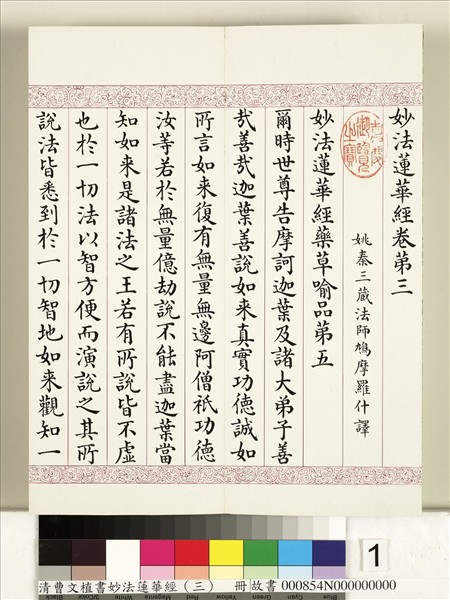 妙法蓮華經卷第三
姚秦三藏法師鳩摩羅什譯
妙法蓮華經藥草喻品第五
爾時世尊告摩訶迦葉及諸大弟子善
哉善哉迦葉善說如來真實功德誠如
所言如來復有無量無邊阿僧祇功德
汝等若於無量億劫說不能盡迦葉當
知如來是諸法之王若有所說皆不虛
也於一切法以智方便而演說之其所
說法皆悉到於一切智地如來觀知一
嘉慶御覽之寶
1
清曹文植書妙法蓮華經（三） 冊 故書 000854N000000000